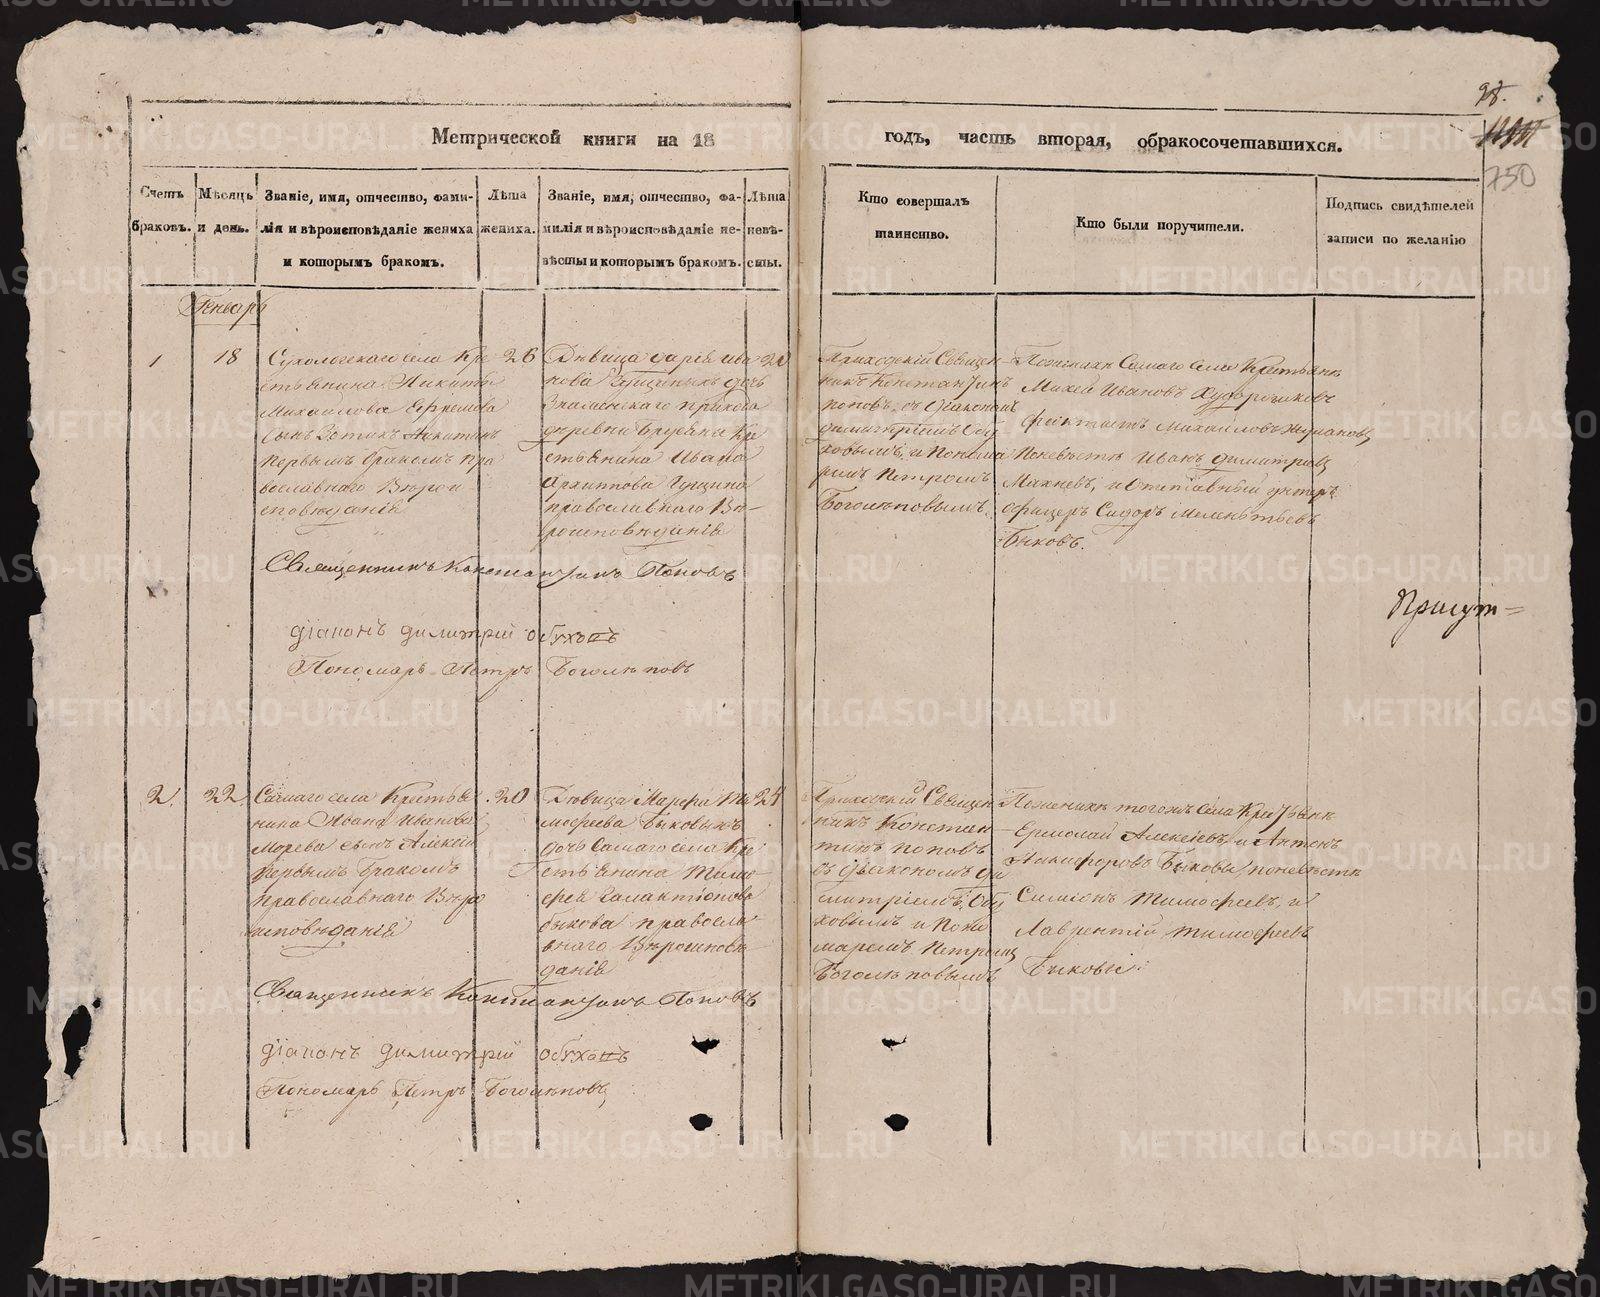 98.
750
Метрической книги на 18 годъ, часть вторая, обракосочетавшихся.
Счетъ браковъ.
Мѣсяцъ и день.
Званіе, имя, отчество, фами-
лія и вѣроисповѣданіе жениха
и которымъ бракомъ.
Лѣта
жениха.
Званіе, имя, отчество, фа-
милія и вѣроисповѣданіе не-
вѣсты и которымъ бракомъ.
Лѣта
невѣ-
сты.
Кто совершалъ
таинство.
Кто были поручители.
Подпись свидѣтелей
записи по желанію
Генварь
1
18
Сухоложскаго села Кре
стьянина Никиты
Михайлова Ефремова
сынъ Зотикъ Никитинъ
первымъ бракомъ пра
вославнаго Вѣрои
сповѣданія
26
Дѣвица Дарья Ива
нова Гущиныхъ дочь
Знаменскаго прихода
деревни Брусяны Кре
стьянина Ивана
Архиппова Гущина
православнаго Вѣ-
роисповѣданія
Приходскій Священ-
никъ Константинъ
Поповъ, съ Діакономъ
Димитріемъ Обу
ховымъ, и Понома
ремъ Петромъ
Боголѣповымъ.
Поженихѣ Самаго Села Крестьяне
Михей Ивановъ
Феоктистъ Михайловъ
Поневѣстѣ Иванъ Димитріев
Махневъ, и Отставный унтеръ
офицеръ Сидоръ Мелентьевъ
Быковъ.
Священникъ Константинъ Поповъ
Діаконъ Димитрій Обуховъ
Пономарь Петръ Боголѣповъ
2.
22.
Самаго села Крестья
нина Ивана Иванова
сынъ Алексѣй
первымъ бракомъ
православнаго Вѣро
исповѣданія
20
Дѣвица Марфа Ти
мофеева Быковыхъ
дочь Самаго села Кре
стьянина Тимо
фея Галактіонова
Быкова правосла
внаго Вѣроисповѣ
данія
24
Приходскій Священ
никъ Констан-
тинъ Поповъ
съ Діакономъ Ди
митріемъ Обу
ховымъ и Поно
маремъ Петромъ
Боголѣповымъ
Поженихѣ тогожъ села Крестьяне
Ермолай Алексѣевъ, и Антонъ
Никифоровъ Быковы, поневѣстѣ
Симіонъ Тимофеевъ, и
Лаврентій Тимофеевъ
Быковы.
Священникъ Константинъ Поповъ
Діаконъ Димитрій Обуховъ
Пономарь Петръ Боголѣповъ
METRIKI.GASO-URAL.RU